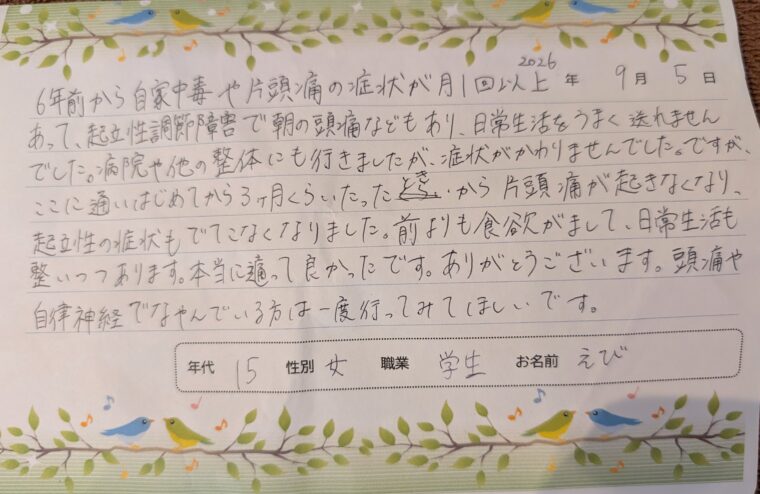 2026年 9月 5日
6年前から自家中毒や片頭痛の症状が月1回以上
あって、起立性調節障害で朝の頭痛などもあり、日常生活をうまく送れません
でした。病院や他の整体にも行きましたが、症状がかわりませんでした。ですが、
ここに通いはじめてから3ヶ月くらいたったときから片頭痛が起きなくなり、
起立性の症状もでてこなくなりました。前よりも食欲がまして、日常生活も
整いつつあります。本当に通って良かったです。ありがとうございます。頭痛や
自律神経でなやんでいる方は一度行ってみてほしいです。
年代 15 性別 女 職業 学生 お名前 えび